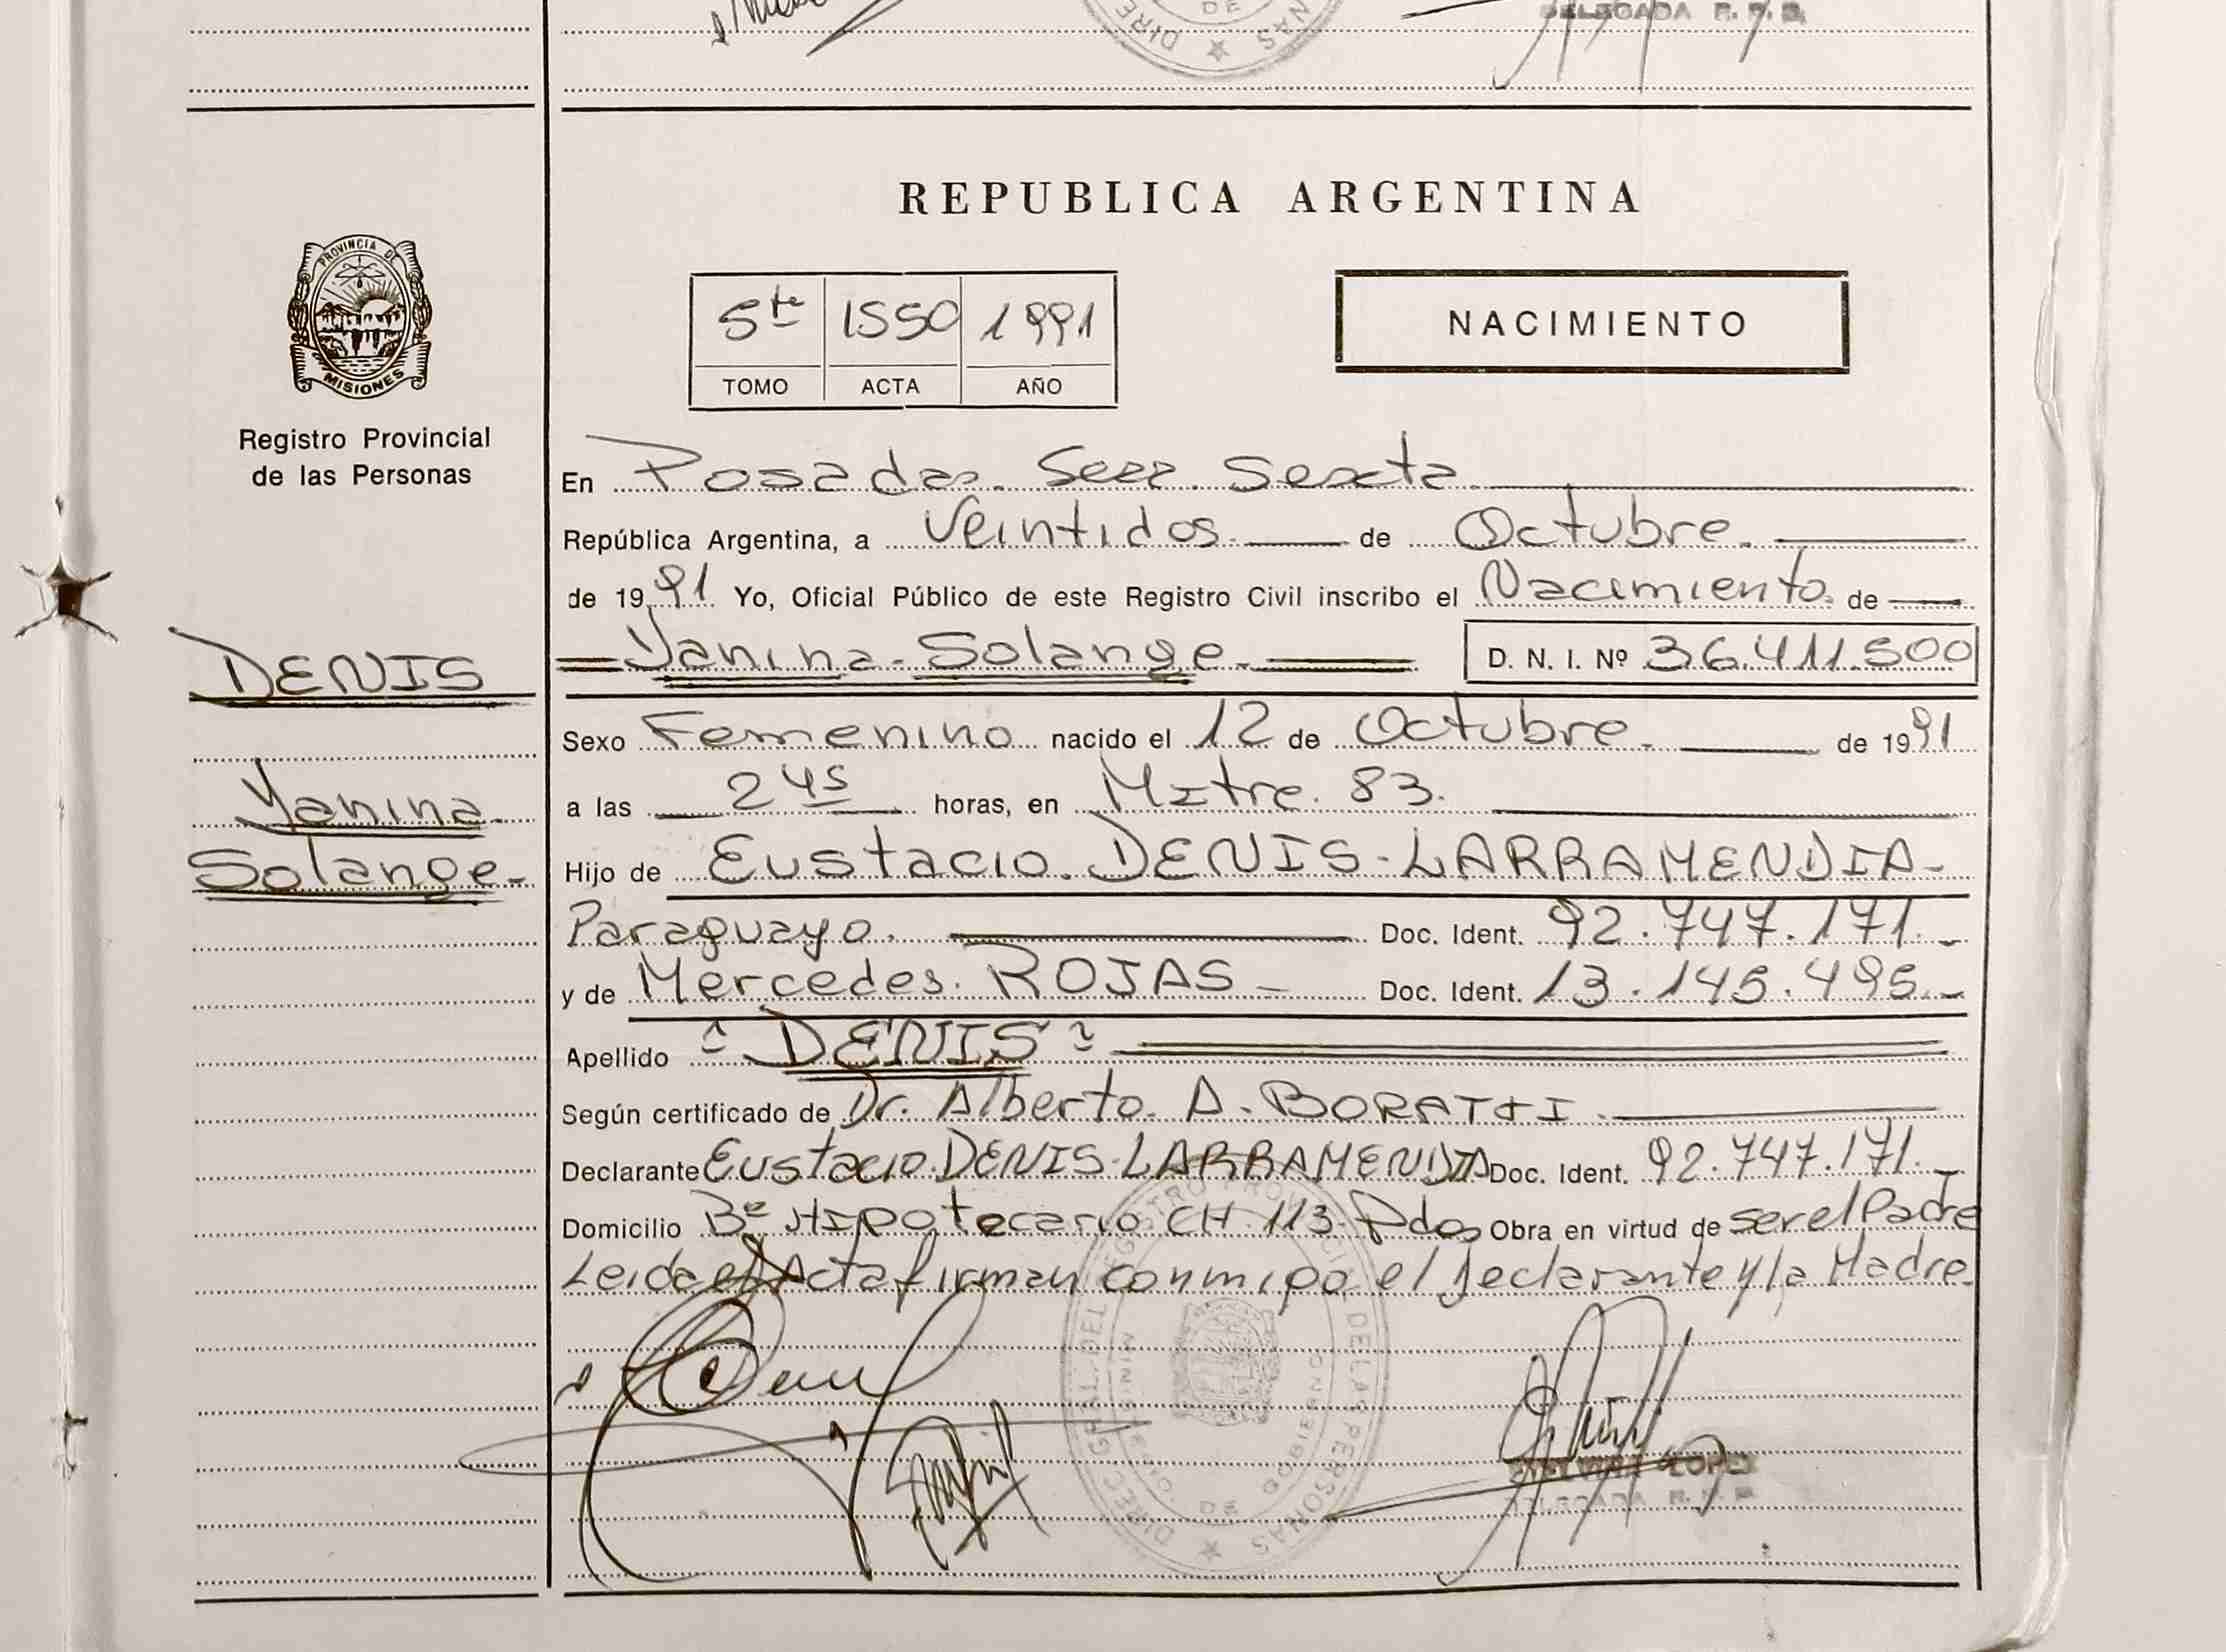 DELEGADA R. P. P.
DIRE
DE
NAS
REPUBLICA ARGENTINA
PROVINCIA DE
MISIONES
Registro Provincial
de las Personas
5te 1550 1991
TOMO ACTA AÑO
NACIMIENTO
En Posadas. Secc. Sexta
República Argentina, a Veintidos de Octubre.
de 1991 Yo, Oficial Público de este Registro Civil inscribo el Nacimiento de
DENIS
Yanina Solange D. N. I. Nº 36.411.500
Sexo Femenino nacido el 12 de Octubre. de 1991
Yanina
a las 2 45 horas, en Mitre. 83.
Solange-
Hijo de Eustacio. DENIS-LARRAMENDIA-
Paraguayo. Doc. Ident. 92.747.171.-
y de Mercedes. ROJAS - Doc. Ident. 13.145.495.-
Apellido "DENIS"
Según certificado de Dr. Alberto. A. BORATTI.
Declarante Eustacio. DENIS-LARRAMENDIA Doc. Ident. 92.747.171.-
Domicilio Bº Hipotecario CH 113-Pdas Obra en virtud de ser el Padre
Leida el Acta firman conmigo el declarante y la Madre.
DIREC. GRAL. DEL REGISTRO PROVINCIAL DE LAS PERSONAS
MINISTERIO DE GOBIERNO
LOPEZ
DELEGADA R. P. P.